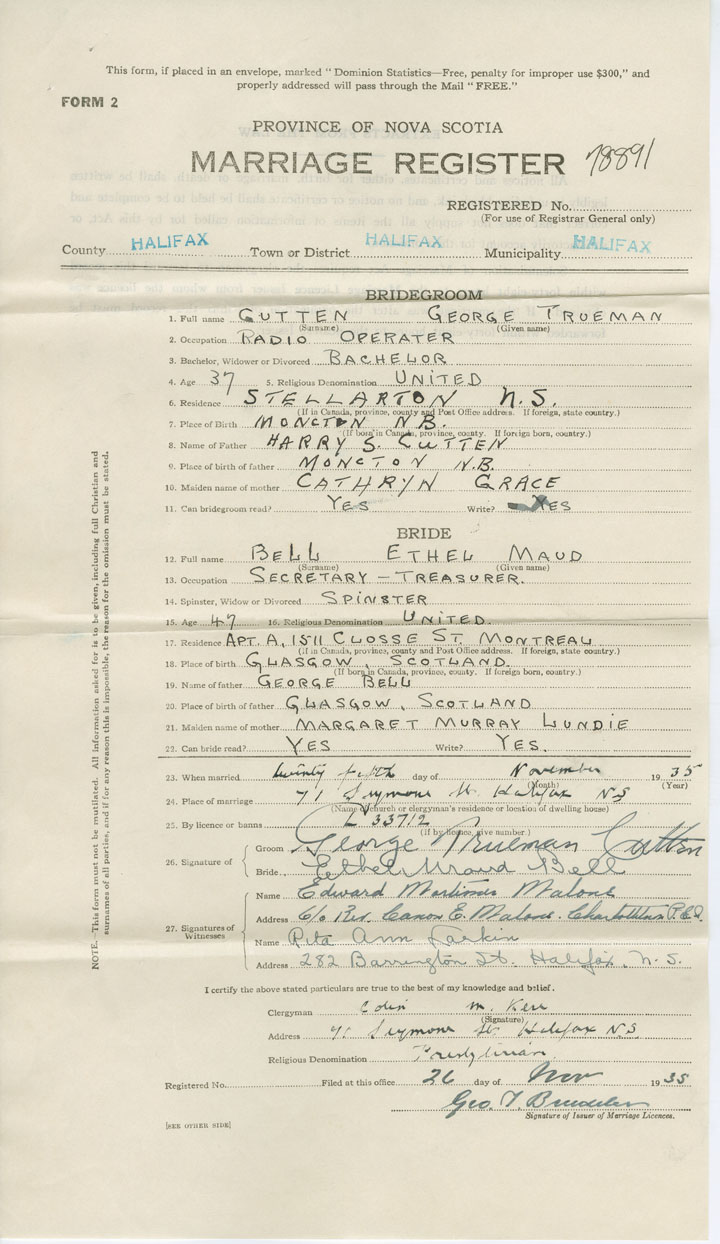 This form, if placed in an envelope, marked "Dominion Statistics—Free, penalty for improper use $300," and
properly addressed will pass through the Mail "FREE."
FORM 2
PROVINCE OF NOVA SCOTIA
MARRIAGE REGISTER 78891
REGISTERED No.
(For use of Registrar General only)
County HALIFAX Town or District HALIFAX Municipality HALIFAX
BRIDEGROOM
1. Full name CUTTEN GEORGE TRUEMAN
(Surname) (Given name)
2. Occupation RADIO OPERATER
3. Bachelor, Widower or Divorced BACHELOR
4. Age 37 5. Religious Denomination UNITED
6. Residence STELLARTON N.S.
(If in Canada, province, county and Post Office address. If foreign, state country.)
7. Place of Birth MONCTON N.B.
(If born in Canada, province, county. If foreign born, country.)
8. Name of Father HARRY S. CUTTEN
9. Place of birth of father MONCTON N.B.
10. Maiden name of mother CATHRYN GRACE
11. Can bridegroom read? YES Write? YES
BRIDE
12. Full name BELL ETHEL MAUD
(Surname) (Given name)
13. Occupation SECRETARY - TREASURER.
14. Spinster, Widow or Divorced SPINSTER
15. Age 47 16. Religious Denomination UNITED.
17. Residence APT. A, 1511 CLOSSE ST. MONTREAL
(If in Canada, province, county and Post Office address. If foreign, state country.)
18. Place of birth GLASGOW, SCOTLAND.
(If born in Canada, province, county. If foreign born, country.)
19. Name of father GEORGE BELL
20. Place of birth of father GLASGOW, SCOTLAND
21. Maiden name of mother MARGARET MURRAY LUNDIE
22. Can bride read? YES Write? YES.
23. When married twenty fifth day of November 1935
(Month) (Year)
24. Place of marriage 71 Seymour St Halifax N S
(Name church or clergyman's residence or location of dwelling house)
25. By licence or banns L 33712
(if by licence, give number.)
26. Signature of
Groom George Trueman Cutten
Bride Ethel Maud Bell
27. Signatures of Witnesses
Name Edward Mortimer Malone
Address c/o Rev. Canon E. Malone. Charlottetown P.E.I.
Name Rita Ann Larkin
Address 282 Barrington St. Halifax, N. S.
I certify the above stated particulars are true to the best of my knowledge and belief.
Clergyman Colin M. Kerr
(Signature)
Address 71 Seymour St. Halifax N S
Religious Denomination Presbyterian
Registered No. Filed at this office 26 day of Nov 1935
Geo T.
Signature of Issuer of Marriage Licences.
[SEE OTHER SIDE]
NOTE.—This form must not be mutilated. All information asked for is to be given, including full Christian and
surnames of all parties, and if for any reason this is impossible, the reason for the omission must be stated.